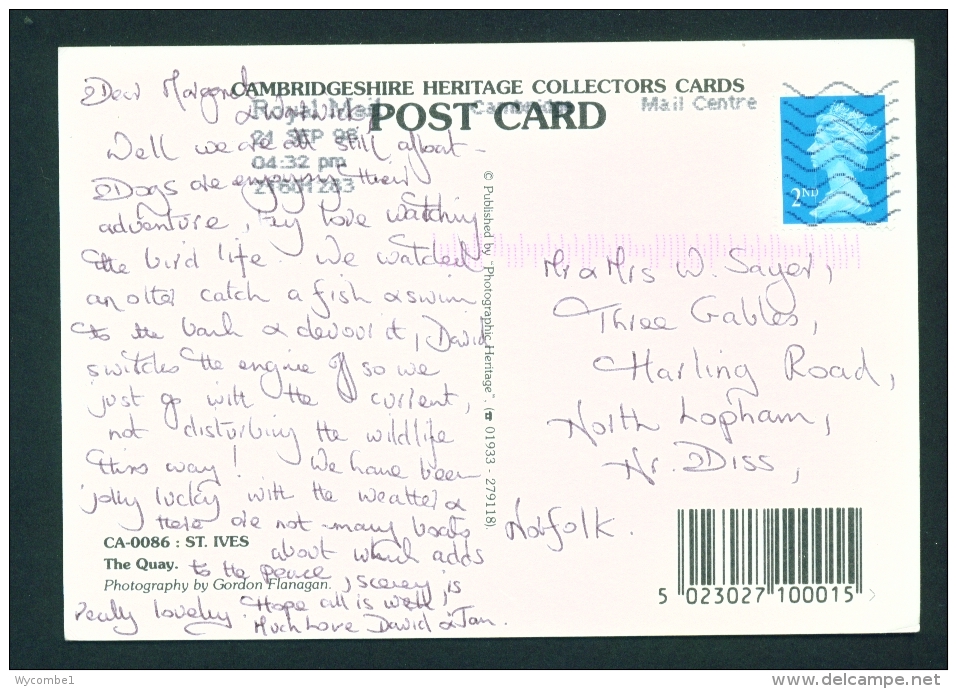 CAMBRIDGESHIRE HERITAGE COLLECTORS CARDS
POST CARD
Royal Mail
Mail Centre
21 SEP 96
04:32 pm
2ND
Dear Margaret
& Warwick,
Well we are all still afloat -
Dogs are enjoying their
adventure, they love watching
the bird life. We watched
an otter catch a fish & swim
to the bank & devour it, David
switches the engine off so we
just go with the current,
not disturbing the wildlife
this way! We have been
jolly lucky with the weather &
there are not many boats
about which adds
to the peace, scenery is
really lovely. Hope all is well,
Much Love David & Jan.
© Published by "Photographic Heritage". (☎ 01933 - 279118).
Mr & Mrs W. Sayer,
Three Gables,
Harling Road,
North Lopham,
Nr. Diss,
Norfolk.
CA-0086 : ST. IVES
The Quay.
Photography by Gordon Flanagan.
5 023027 100015 >
Wycombe1
www.delcampe.net